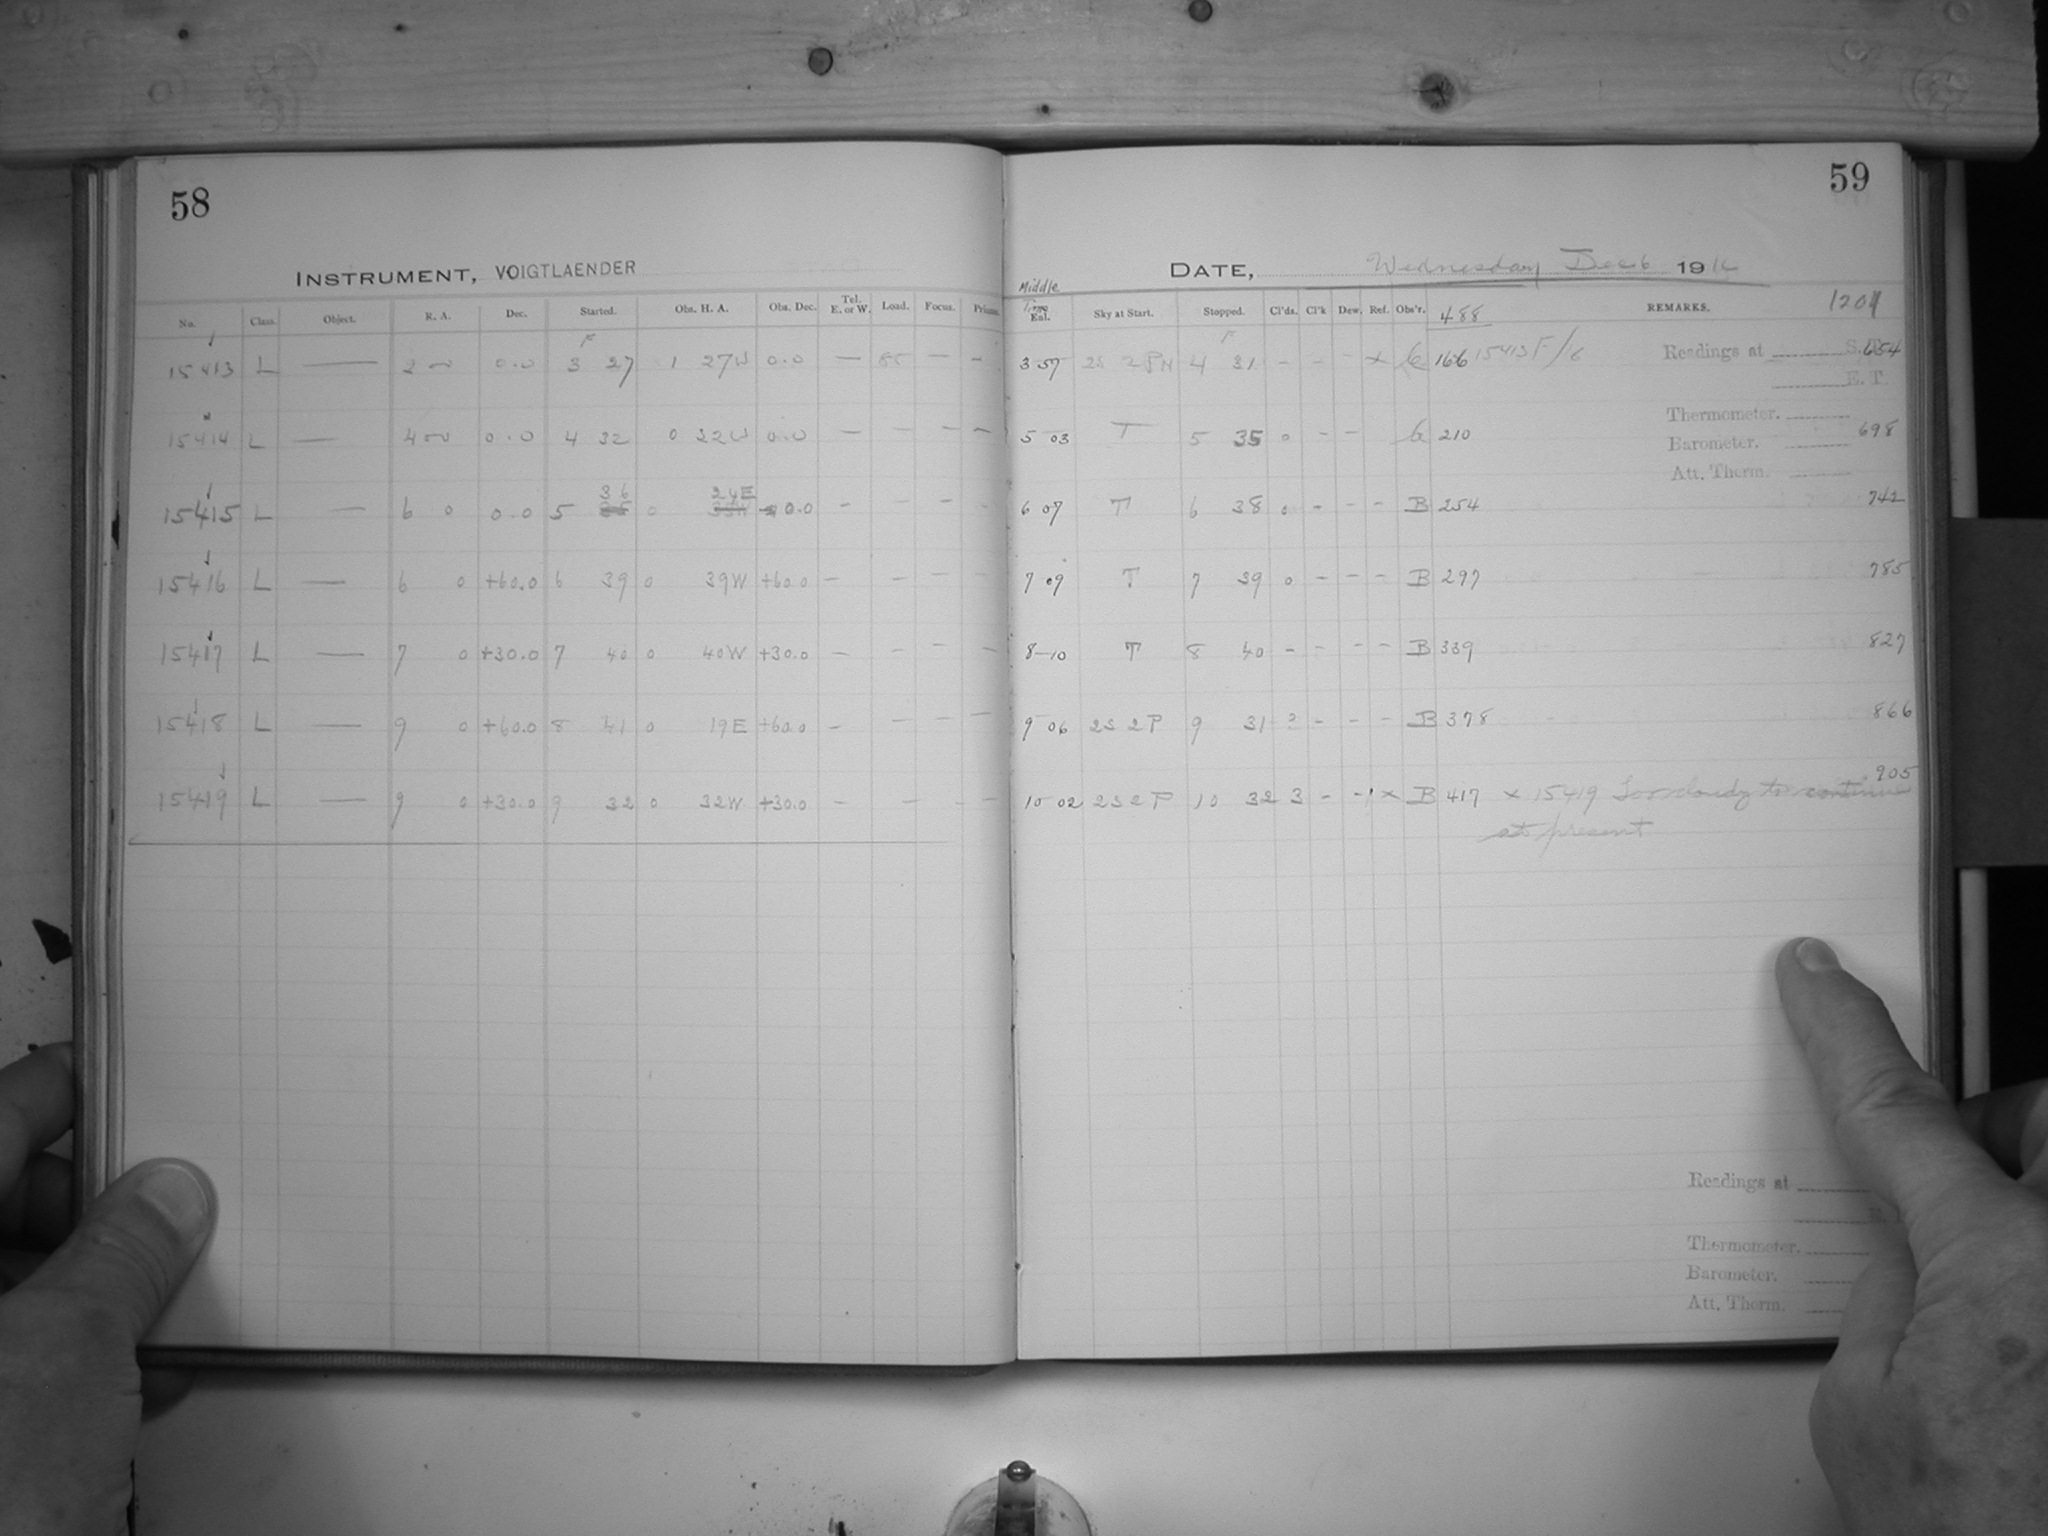 58
INSTRUMENT, VOIGTLAENDER
No. Class. Object. R. A. Dec. Started. Obs. H. A. Obs. Dec. Tel. E. or W. Load. Focus.
15413 L — 0.0 3 27 1 27W 0.0 — — —
15414 L — 4 0 0 0.0 4 32 0 22W 0.0 — — — —
15415 L — 6 0 0.0 5 36 0 24E 0.0 — — —
15416 L — 6 0 +60.0 6 39 0 39W +60.0 — — — —
15417 L — 7 0 +30.0 7 40 0 40W +30.0 — — — —
15418 L — 9 0 +60.0 8 41 0 19E +60.0 — — — —
15419 L — 9 0 +30.0 9 32 0 32W +30.0 — — — —
59
DATE, Wednesday Dec 6 1916
Middle Time
Exl. Sky at Start. Stopped. Cl'ds. Cl'k Dew. Ref. Obs'r. 488 REMARKS. 1204
3 57 2S 2PN 4 31 – – – x G 166 15413 F/6 Readings at S. T. 654
E. T.
Thermometer.
5 03 T 5 35 0 – – G 210 Barometer. 698
Att. Therm.
6 07 T 6 38 0 – – – B 254 742
7 09 T 7 39 0 – – – B 297 785
8–10 T 8 40 – – – – B 339 827
9 06 2S 2P 9 31 3 – – – B 378 866
10 02 2S 2P 10 32 3 – – x B 417 x 15419 Too cloudy to continue 905
at present
Readings at
Thermometer.
Barometer.
Att. Therm.